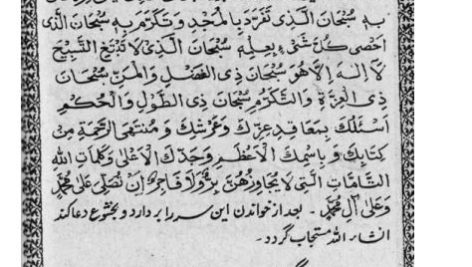 به سُبْحَانَ الَّذِی تَفَرَّدَ بِالْمَجْدِ وَ تَكَرَّمَ بِهِ سُبْحَانَ الَّذِی
اَحْصٰی كُلَّ شَیْءٍ بِعِلْمِهِ سُبْحَانَ الَّذِی لَا یَنْبَغِی التَّسْبِیحُ
لَا اِلٰهَ اِلَّا هُوَ سُبْحَانَ ذِی الْفَضْلِ وَ الْمَنِّ سُبْحَانَ
ذِی الْعِزَّةِ وَ التَّكَرُّمِ سُبْحَانَ ذِی الطَّوْلِ وَ الْحُكْمِ
اَسْئَلُكَ بِمَعَاقِدِ عِزِّكَ وَ عَرْشِكَ وَ مُنْتَهَی الرَّحْمَةِ مِنْ
كِتَابِكَ وَ بِاسْمِكَ الْاَعْظَمِ وَ جَدِّكَ الْاَعْلٰی وَ كَلِمَاتِ اللّٰهِ
التَّامَّاتِ الَّتِی لَا یُجَاوِزُهُنَّ بَرٌّ وَ لَا فَاجِرٌ اِنْ تُصَلِّیَ عَلٰی مُحَمَّدٍ
وَ عَلٰی آلِ مُحَمَّدٍ ـ بعد از خواندن این سر را بردارد و بخشوع دعا كند
انشاء اللّٰه مستجاب گردد ـ